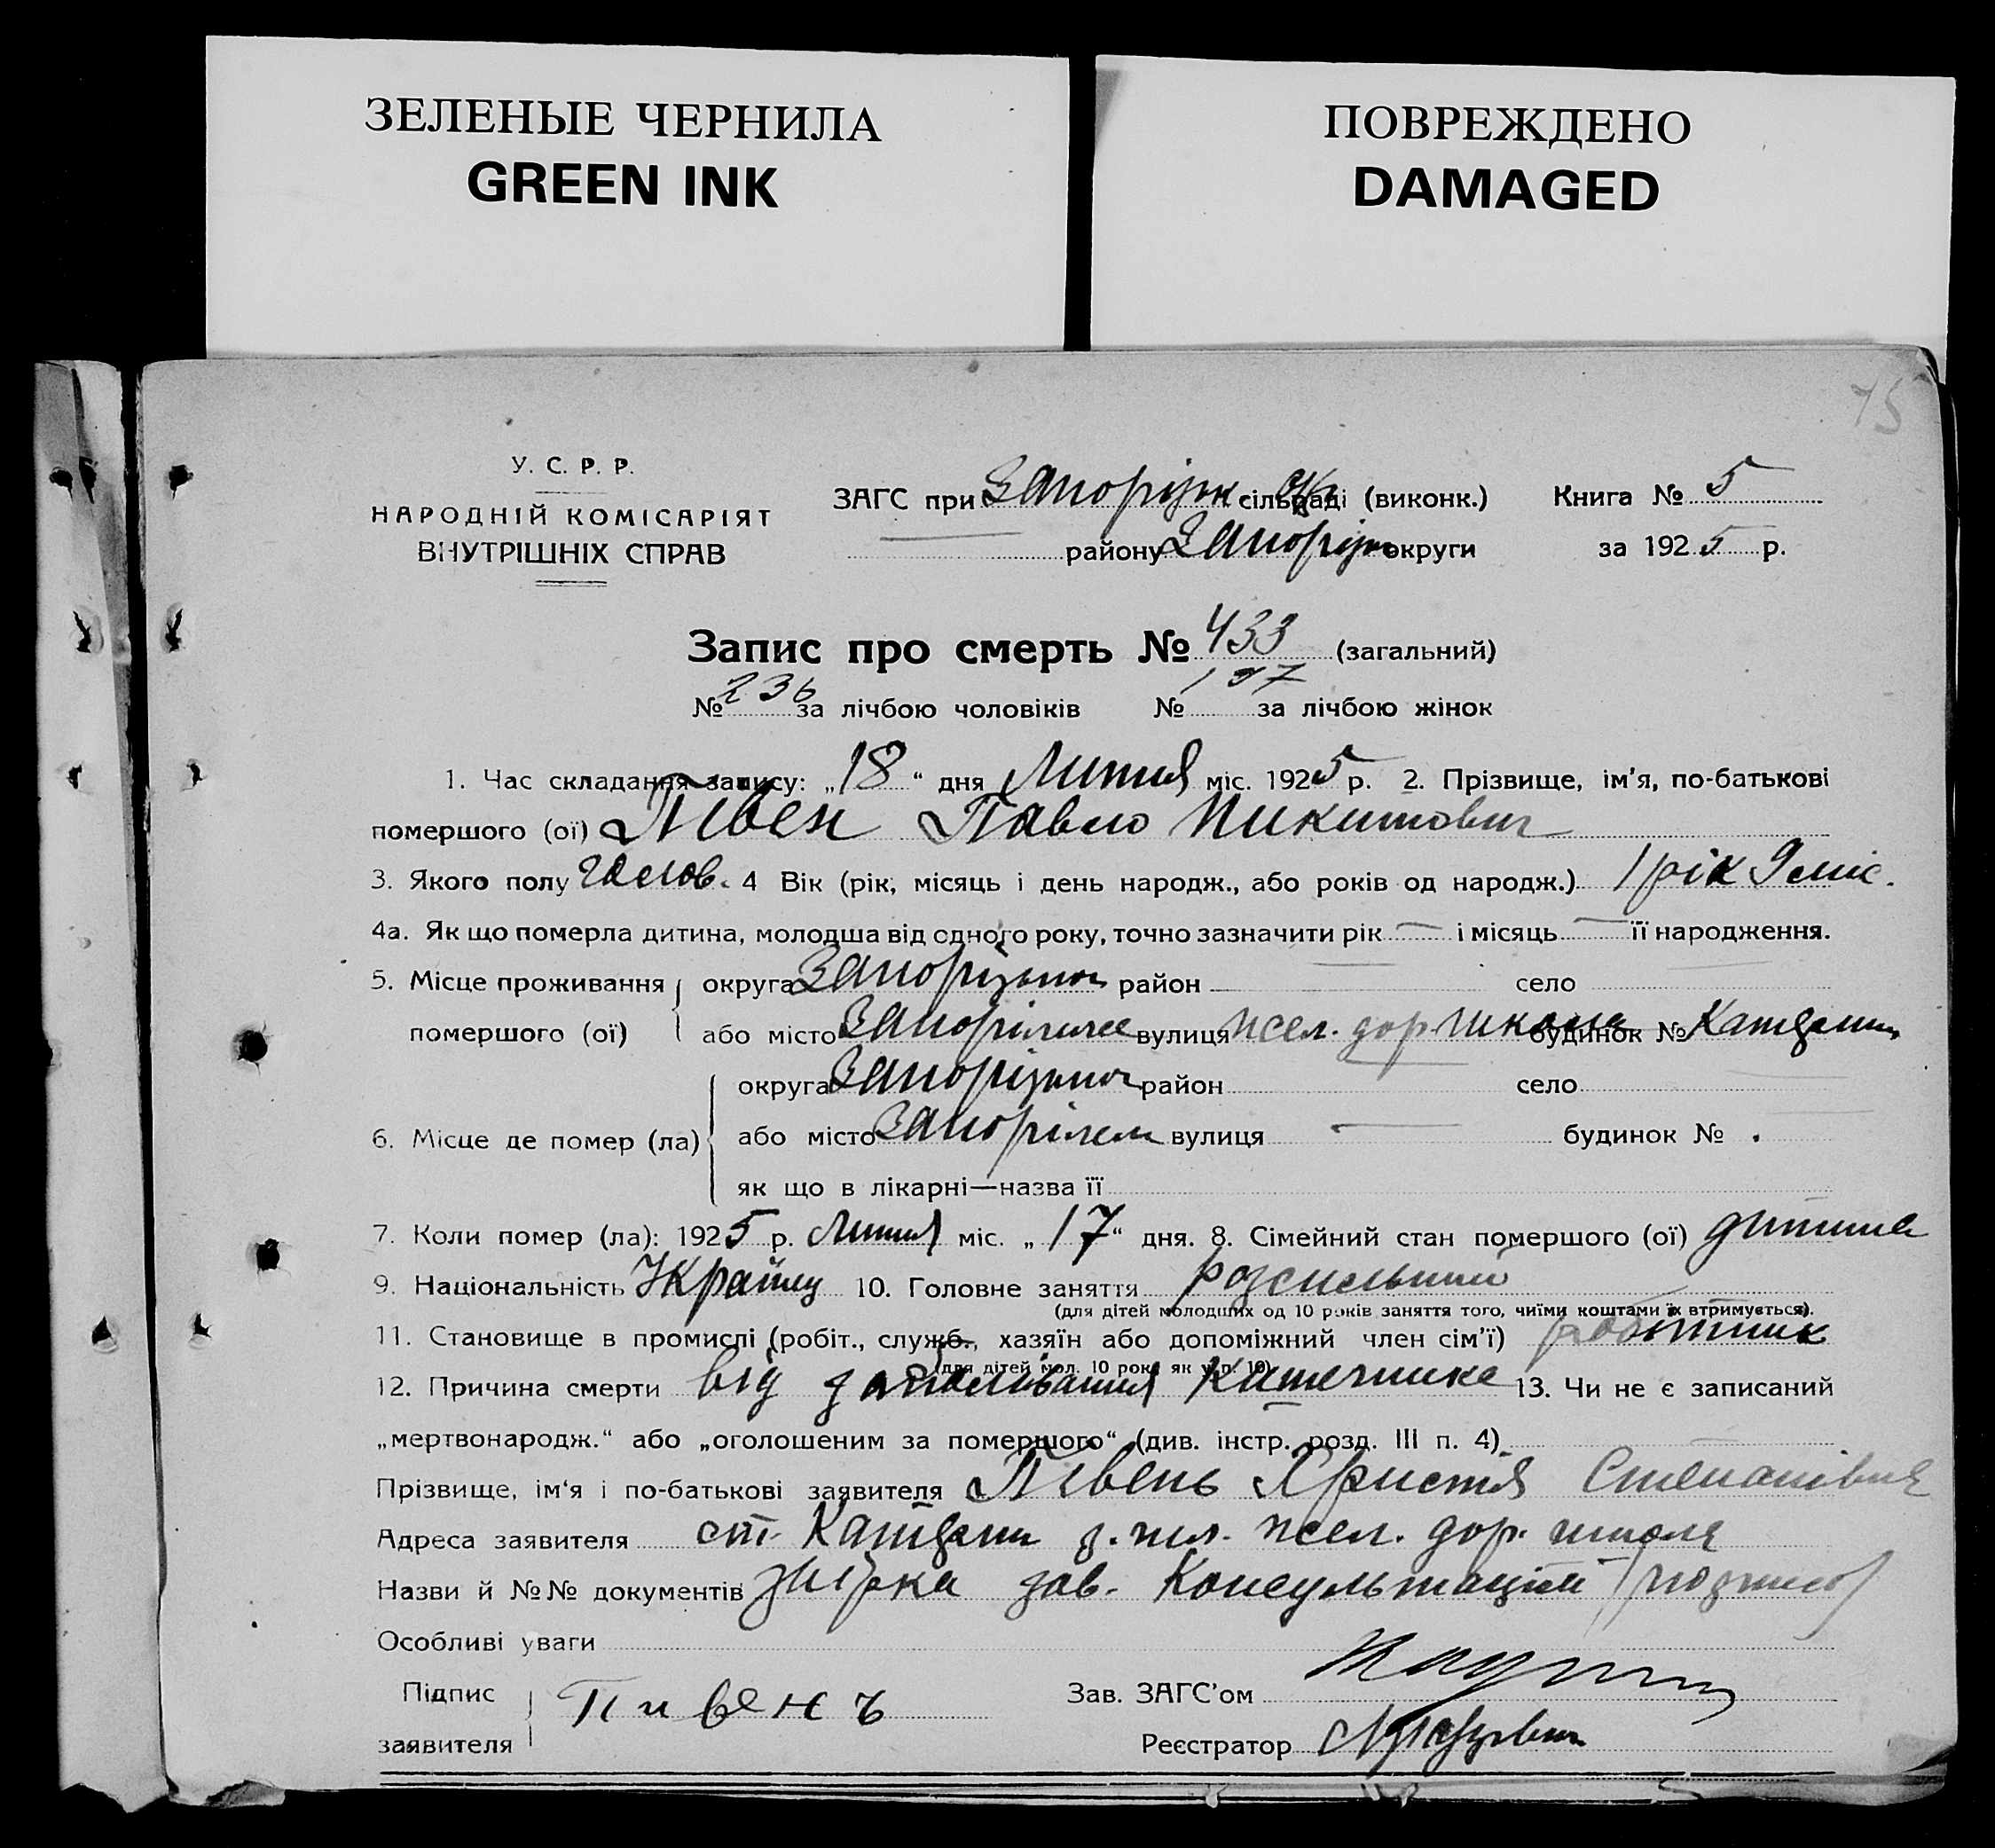 ЗЕЛЕНЫЕ ЧЕРНИЛА
GREEN INK
ПОВРЕЖДЕНО
DAMAGED
75
У. С. Р. Р.
НАРОДНІЙ КОМІСАРІЯТ
ВНУТРІШНІХ СПРАВ
ЗАГС при Запорізьк сільраді (виконк.) Книга № 5
району Запорізьк округи за 1925 р.
Запис про смерть № 433 (загальний)
№ 236 за лічбою чоловіків № 197 за лічбою жінок
1. Час складання запису: „18“ дня Липня міс. 1925 р. 2. Прізвище, ім'я, по-батькові
помершого (ої) Півен Павло Микитович
3. Якого полу чолов. 4 Вік (рік, місяць і день народж., або років од народж.) 1 рік 9 міс.
4а. Як що померла дитина, молодша від одного року, точно зазначити рік — і місяць — її народження.
5. Місце проживання округа Запорізька район село
помершого (ої) або місто Запоріжжє вулиця жел. дор школа будинок №
округа Запорізька район село
6. Місце де помер (ла) або місто Запоріжжє вулиця — будинок №
як що в лікарні—назва її
7. Коли помер (ла): 1925 р. Липня міс. „17“ дня. 8. Сімейний стан помершого (ої) дитина
9. Національність Українц 10. Головне заняття
(для дітей молодших од 10 років заняття того, чиїми коштами їх втримується).
11. Становище в промислі (робіт., служб., хазяїн або допоміжний член сім'ї) робітник
(для дітей мол. 10 рок. як у п. 10)
12. Причина смерти від запалювання Кишечника 13. Чи не є записаний
„мертвонародж.“ або „оголошеним за помершого“ (див. інстр. розд. III п. 4)
Прізвище, ім'я і по-батькові заявителя Півень Христія Степанівна
Адреса заявителя ст. жел. дор. школа
Назви й №№ документів зав. Консультації
Особливі уваги
Підпис
заявителя Пивень
Зав. ЗАГС'ом
Реєстратор